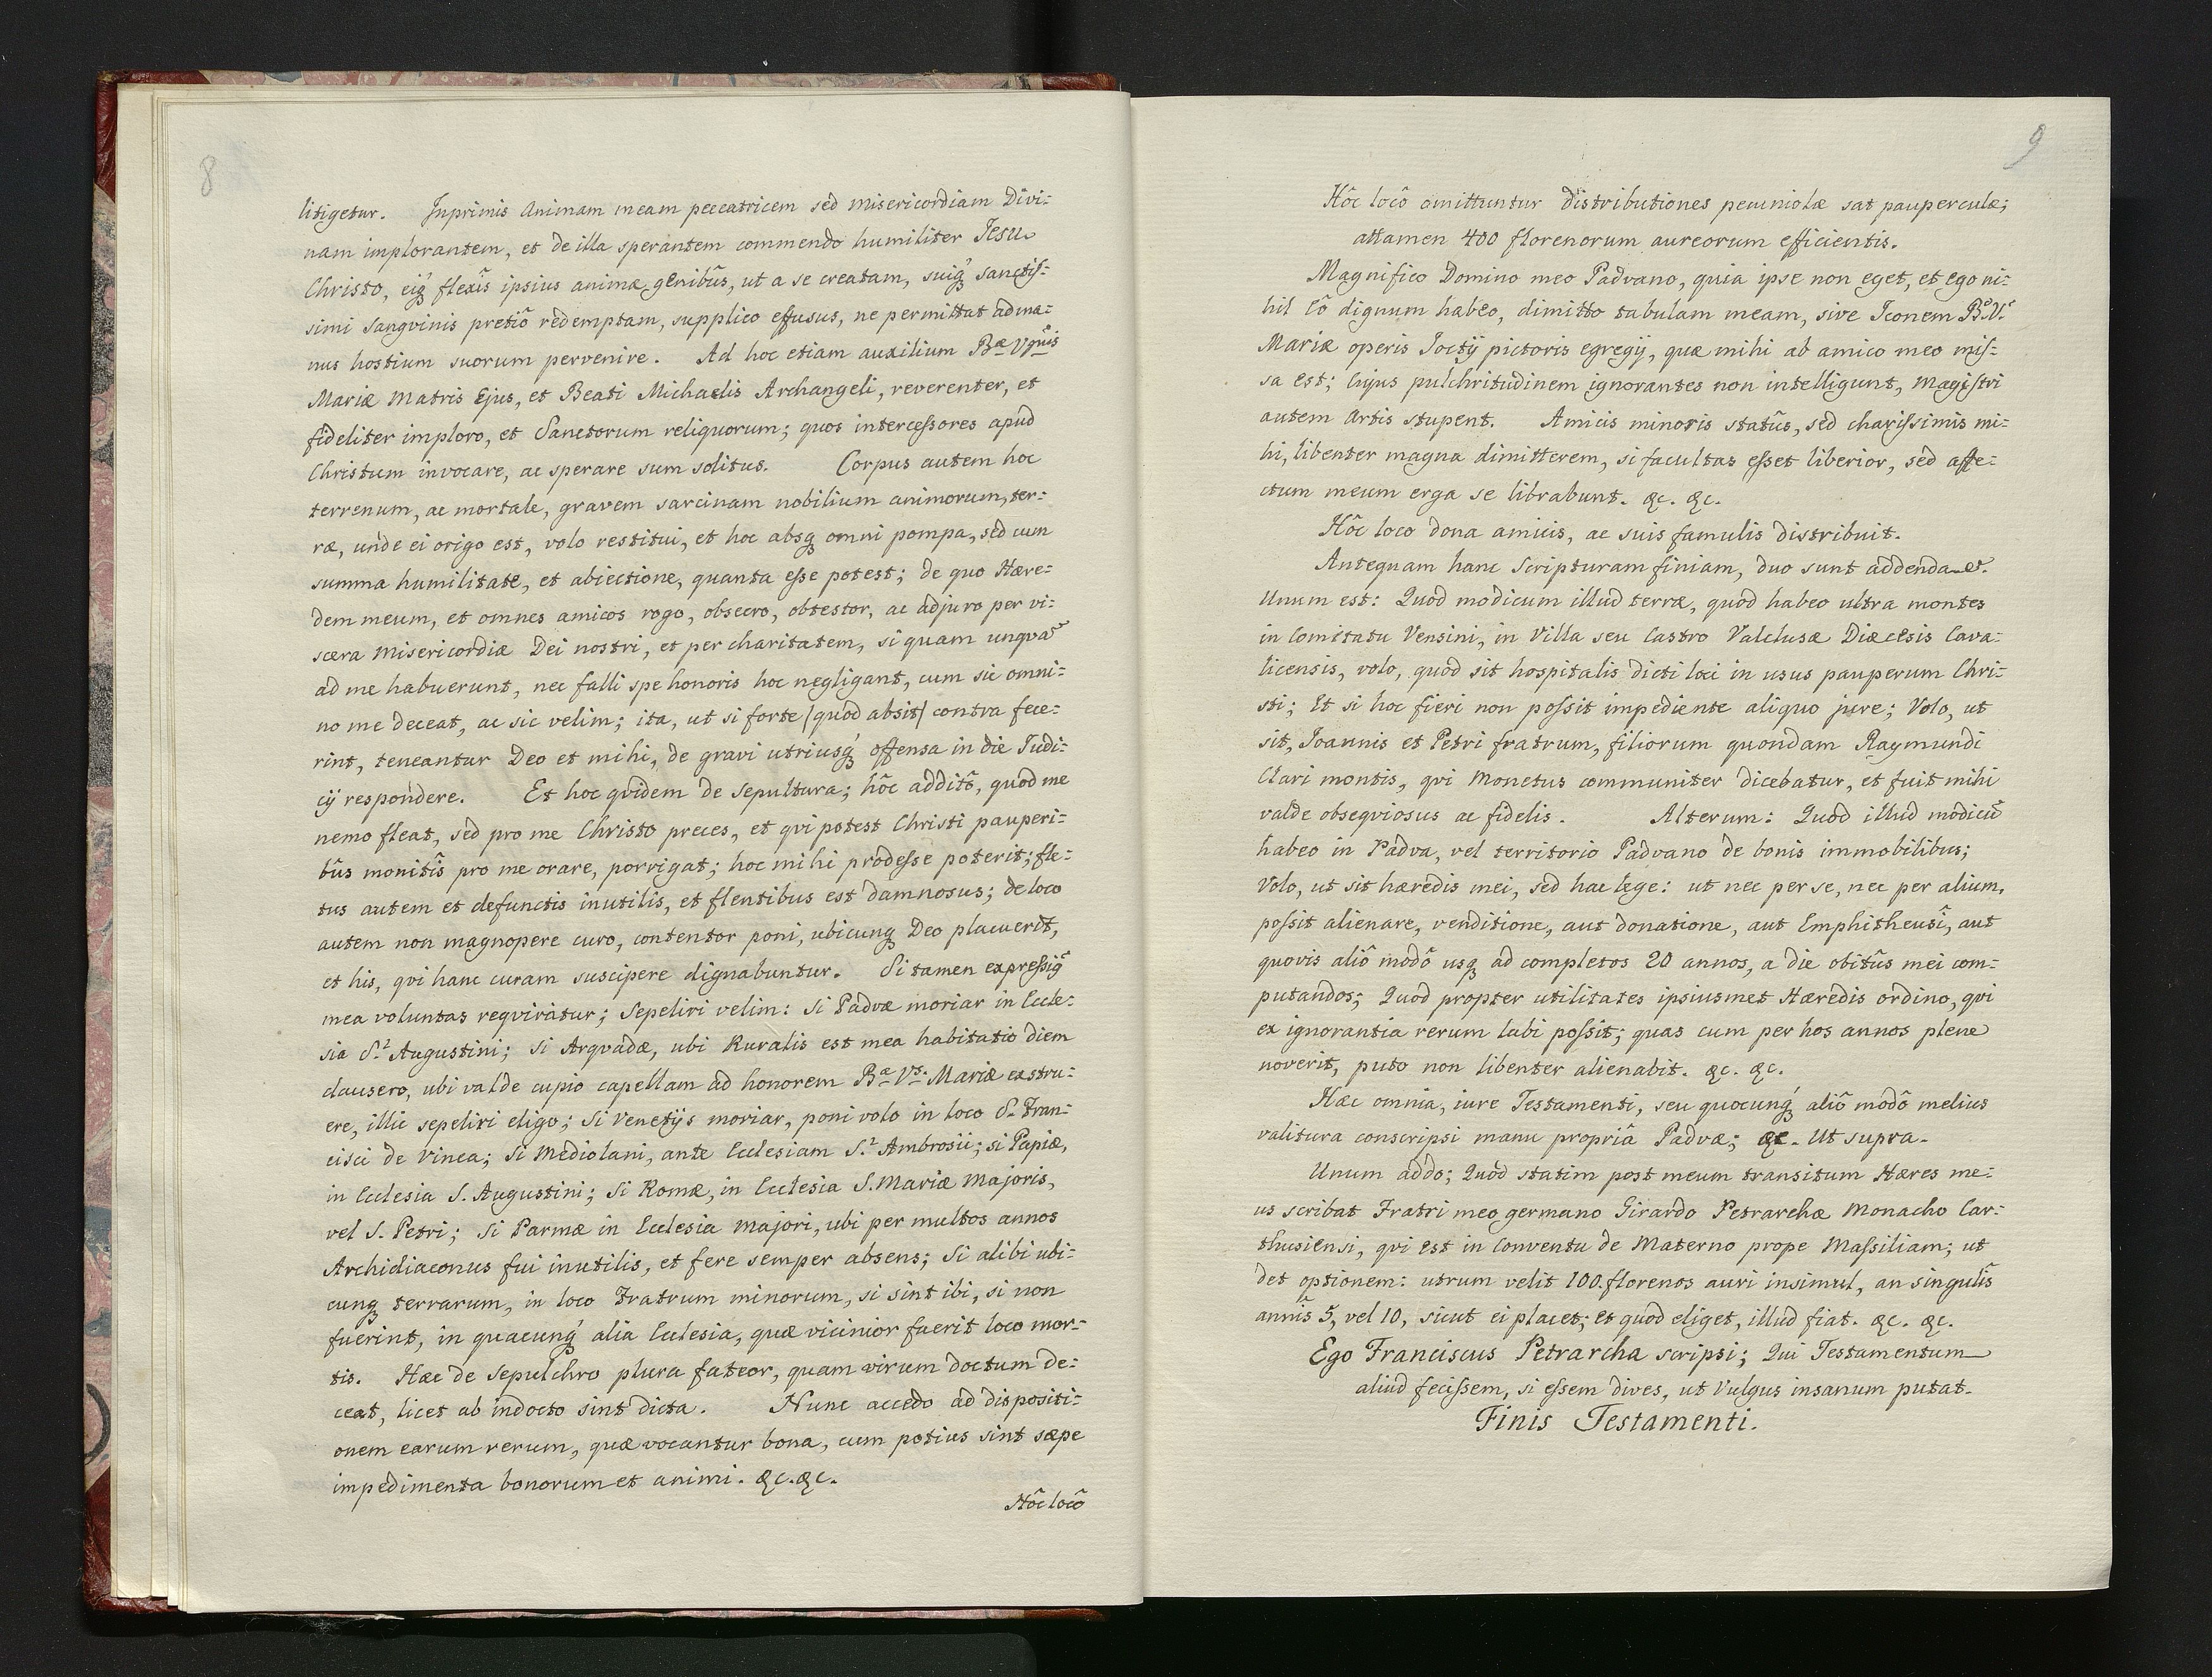 8
litigetur. Inprimis Animam meam peccatricem sed misericordiam Divi=
nam implorantem, et de illa sperantem commendo humiliter Jesu
Christo, eiq́ꝫ flexîs ipsius animæ genibûs, ut a se creatam, suiq́ꝫ sanctiſ=
simi sangvinis pretiô redemptam, supplico effusus, ne permittat ad ma=
nus hostium suorum pervenire. Ad hoc etiam auxilium Bæ Vgnis
Mariæ Matris Ejus, et Beati Michaelis Archangeli, reverenter, et
fideliter imploro, et Sanctorum reliquorum; quos interceſsores apud
Christum invocare, ac sperare sum solitus. Corpus autem hoc
terrenum, ac mortale, gravem sarcinam nobilium animorum, ter=
ræ, unde ei origo est, volo restitui, et hoc absqꝫ omni pompa, sed cum
summa humilitate, et abiectione, quanta eſse potest; de quo Hære=
dem meum, et omnes amicos rogo, obsecro, obtestor, ac adjuro per vi=
scera Misericordiæ Dei nostri, et per charitatem, si quam unqvã
ad me habuerunt, nec falli spe honoris hoc negligant, cum sic omni=
no me deceat, ac sic velim; ita, ut si forte (quod absit) contra fece=
rint, teneantur Deo et mihi, de gravi utriusq́ꝫ offensa in die Judi=
cij respondere. Et hoc qvidem de sepultura; hôc additô, quod me
nemo fleat, sed pro me Christo preces, et qvi potest Christi pauperi=
bûs monitîs pro me orare, porrigat; hoc mihi prodeſse poterit; fle=
tus autem et defunctis inutilis, et flentibus est damnosus; de loco
autem non magnopere curo, contentor poni, ubicunqꝫ Deo placuerit,
et his, qvi hanc curam suscipere dignabuntur. Si tamen expreſsiq́ꝫ
mea voluntas reqviràtur; Sepeliri velim: Si Padvæ moriar in Eccle=
sia S.ᵗ Augustini; Si Arqvadæ, ubi Ruralis est mea habitatio diem
clausero, ubi valde cupio capellam ad honorem Bæ Vs. Mariæ exstru=
ere, illic sepeliri eligo; Si Venetijs moriar, poni volo in loco S. Fran=
cisci de Vinea; Si Mediolani, ante Ecclesiam S.ᵗ Ambrosii; si Papiæ,
in Ecclesia S. Augustini; Si Romæ, in Ecclesia S. Mariæ Majoris,
vel S. Petri; Si Parmæ in Ecclesia majori, ubi per multos annos
Archidiaconus fui inutilis, et fere semper absens; Si alibi ubi=
cunqꝫ terrarum, in loco Fratrum minorum, si sint ibi, si non
fuerint, in quacunq́ꝫ alia Ecclesia, quæ vicinior fuerit loco mor=
tis. Hæc de sepulchro plura fateor, quam virum doctum de=
ceat, licet ab indocto sint dicta. Nunc accedo ad dispositi=
onem earum rerum, quæ vocantur bona, cum potius sint sæpe
impedimenta bonorum et animi. &c. &c.
Hôc locô
9
Hôc locô omittuntur distributiones pecuniolæ sat pauperculæ;
attamen 400 florenorum aureorum efficientis.
Magnifico Domino meo Padvano, quia ipse non eget, et ego ni=
hil eô dignum habeo, dimitto tabulam meam, sive Iconem Bæ V.
Mariæ operis Joctij pictoris egregij, quæ mihi ab amico meo miſ=
sa est; Cujus pulchritudinem ignorantes non intelligunt, magiſtri
autem artis stupent. Amicis minoris statûs, sed chariſsimis mi=
hi, libenter magna dimitterem, si facultas eſset liberior, sed affe=
ctum meum erga se librabunt. &c. &c.
Hôc loco dona amicis, ac suis famulis distribuit.
Antequam hanc scripturam finiam, duo sunt addenda et.
Unum est: Quod modicum illud terræ, quod habeo ultra montes
in Comitatu Vensini, in Villa seu Castro Valclusæ Diæcesis Cava=
licensis, volo, quod sit hospitalis dicti loci in usus pauperum Chri=
sti; Et si hoc fieri non poſsit impediente aliquo jure; Volo, ut
sit, Joannis et Petri fratrum, filiorum quondam Raymundi
Clari montis, qvi Monetus communiter dicebatur, et fuit mihi
valde obseqviosus ac fidelis. Alterum: Quod illud modicũ
habeo in Padva, vel territorio Padvano de bonis immobilibus;
Volo, ut sit hæredis mei, sed hac lege: ut nec per se, nec per alium,
poſsit alienare, venditione, aut donatione, aut Emphitheusî, aut
quovis aliô modô usqꝫ ad completos 20 annos, a die obitûs mei com=
putandos; Quod propter utilitates ipsiusmet Hæredis ordino, qvi
ex ignorantia rerum labi poſsit; quas cum per hos annos plene
noverit, puto non libenter alienabit. &c. &c.
Hæc omnia, iure Testamenti, seu quocunq́ꝫ aliô modô melius
valitura conscripsi manu propriâ Padvæ; &c. Ut supra.
Unum addo; Quod statim post meum transitum Hæres me=
us scribat Fratri meo germano Girardo Petrarchæ Monacho Car=
thusiensi, qvi est in Conventu de Materno prope Maſsiliam; ut
det optionem: utrum velit 100. florenos auri insimul, an singulîs
annîs 5, vel 10, sicut ei placet; et quod eliget, illud fiat. &c. &c.
Ego Franciscus Petrarcha scripsi; Qui Testamentum
aliud feciſsem, si eſsem dives, ut Vulgus insanum putat.
Finis Testamenti.